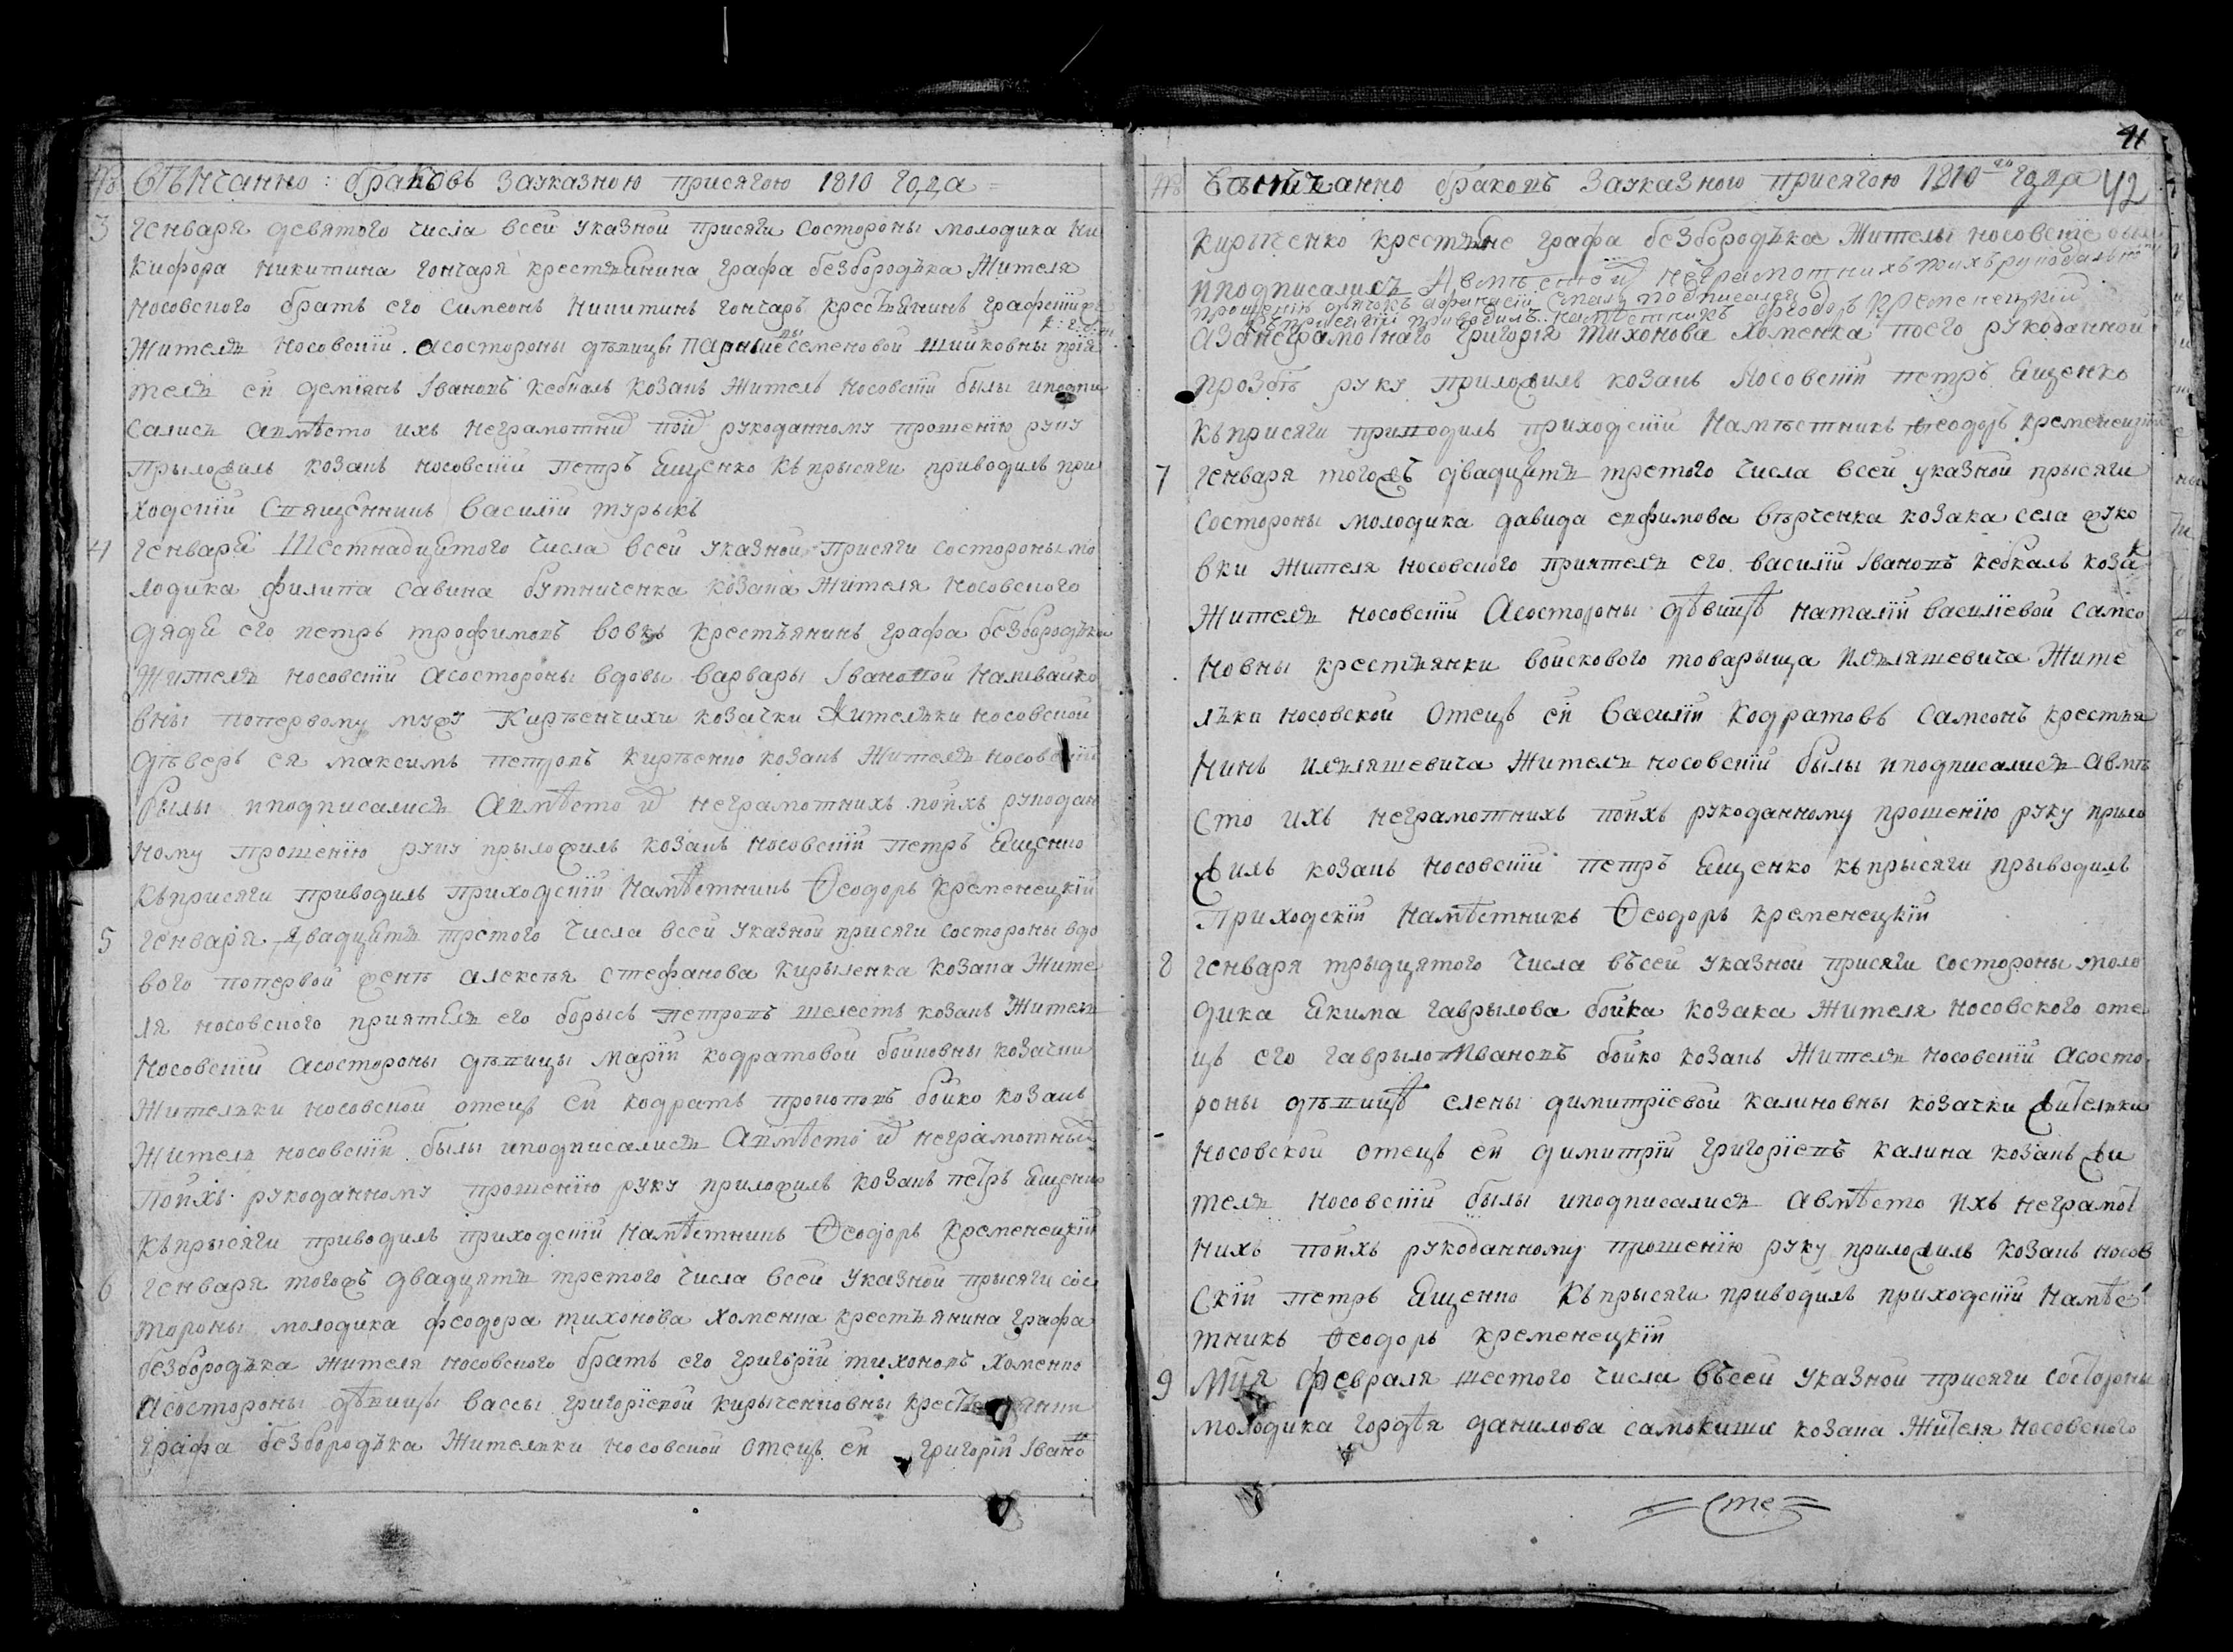 № Вѣнчанно: браковъ зауказною присягою 1810 года =
3 Генваря девятого числа всей указной присяги состороны молодика Ни
кифора никитина гончаря крестьянина графа безбородька Жителя
носовского братъ его симеонъ никитинъ гончаръ крестьянинъ графский
Житель носовский. асостороны дѣвицы семеновой шийковны прія
тель ей деміянъ Ивановъ кебкаль козакъ Житель носовскій былы иподпи
салися авмѣсто ихъ неграмотних поих рукоданному прошенію руку
прыложиль козакъ носовскій петръ Ященко къ прысяги приводиль при
ходскій Священникъ Василій турыкъ
4 генваря Шестнадцятого числа всей указной присяги состороны мо
лодика филипа савина бутниченка козака Жителя носовского
дядя его петръ трофимовъ вовкъ крестъянинъ графа безбородька
Житель носовскій асостороны вдовы варвары Івановой наливайко
вны попервому мужу Кирѣенчихи козачки Жительки носовской
дѣверь ея максимъ петровъ кирѣенко козакъ Житель носовскій
былы иподписалися Авмѣсто их неграмотнихъ поихъ рукодан
ному прошенію руку прыложиль козакъ носовскій петръ Ященко
къ присяги приводиль приходскій намѣстникъ Ѳеодоръ Кременецкій
5 генваря двадцять третого числа всей указной присяги состороны вдо
вого попервой женѣ алексѣя стефанова кирыленка козака Жите
ля носовского приятель его борысъ петровъ шелестъ козакъ Житель
носовскій асостороны дѣвицы Маріи кодратовой бойковны козачки
Жительки носовской отецъ ей кодратъ прокоповъ бойко козакъ
Житель носовскій былы иподписалися Авмѣсто их неграмотных
поихъ рукоданному прошенію руку приложиль козакъ петръ Ященко
къ прысяги приводиль приходскій намѣстникъ Ѳеодоръ Кременецкій
6 генваря тогожъ двадцять третого числа всей указной прысяги сос
тороны молодика феодора тихонова хоменка крестъянина графа
безбородька жителя носовского братъ его григорій тихоновъ хоменко
асостороны дѣвицы вассы григоріевой кирыченковны
графа безбородька Жительки носовской отецъ ей григорій Івано
41
42
№ Вѣнчанно браковъ зауказною присягою 1810го года
кирыченко крестьяне графа безбородька Жители носовскіе былы
иподписались Авмѣсто их неграмотнихъ поихъ рукоданному
прошенію
къ присягѣ приводилъ намѣстникъ Ѳеодоръ Кременецкій
азанеграмотнаго григорія тихонова хоменка поего рукоданной
прозбѣ руку приложиль козакъ Носовскій петръ Ященко
къ присяги приводиль приходскій намѣстникъ Ѳеодоръ Кременецкій
7 генваря тогожъ двадцять третого числа всей указной прысяги
состороны молодика давида евфимова вѣрченка козака села жуко
вки жителя носовского приятель его василій Івановъ кебкаль козакъ
Житель носовскій Асостороны дѣвицѣ наталіи василіевой самсо
новны крестьянки войскового товарыща Илляшевича Жите
льки носовской Отецъ ей Василій кодратовъ самсонъ крестья
нинъ илляшевича Житель носовскій былы иподписалися авмѣ
сто ихъ неграмотнихъ поихъ рукоданному прошенію руку прыло
жиль козакъ носовскій петръ Ященко къ прысяги прыводилъ
Приходскій намѣстникъ Ѳеодоръ Кременецкій
8 генваря трыдцятого числа въсей указной присяги состороны моло
дика Якима гаврылова бойка козака Жителя носовского оте
цъ его гаврыло Ивановъ бойко козакъ Житель носовскій асосто
роны дѣвицѣ елены димитріевой калиновны козачки жительки
носовской отецъ ей димитрій григоріевъ калина козакъ жи
тель носовскій былы иподписалися авмѣсто ихъ неграмот
нихъ поихъ рукоданному прошенію руку приложиль козакъ носов
скій петръ Ященко къ прысяги приводиль приходскій намѣс
тникъ Ѳеодоръ Кременецкій
9 Мця февраля шестого числа въсей указной присяги состороны
молодика гордѣя данилова самокиши козака Жителя носовского